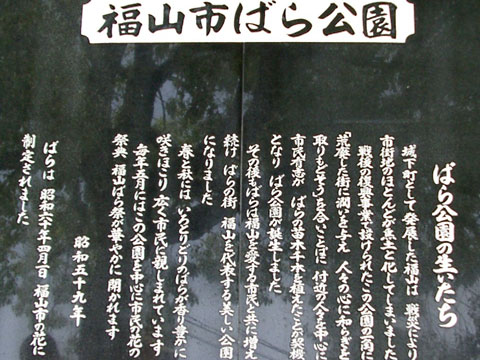 福山市ばら公園
ばら公園の生いたち
城下町として発展した福山は 戦災により
市街地のほとんどが焦土と化してしまいました
戦後の復興事業で設けられたこの公園の一角に
「荒廃した街に潤いを与え 人々の心に和らぎを
取りもどそう」を合いことばに 付近の人々を中心に
市民有志が ばらの苗木千本を植えたことが契機
となり ばら公園が誕生しました
その後 ばらは福山を愛する市民と共に増え
続け ばらの街 福山を代表する美しい公園
になりました
春と秋には いろとりどりのばらが香り豊かに
咲きほこり 広く市民に親しまれています
毎年五月にはこの公園を中心に市民の花の
祭典 福山ばら祭が華やかに 開かれます
昭和五十九年
ばらは 昭和六十年四月日 福山市の花に
制定されました